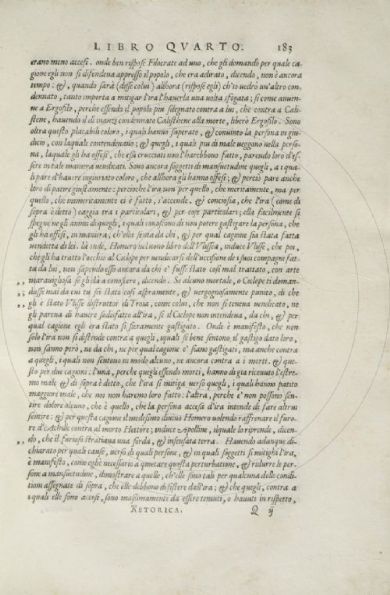 LIBRO QVARTO. 183
erano meno accesi. onde ben rispose Filocrate ad uno, che gli domandò per quale ca
gione egli non si difendeua appresso il popolo, che era adirato, dicendo, non è ancora
tempo: &, quando sarà (disse colui) allhora (rispose egli) ch'io uedrò un'altro con
dennato, tanto importa à mitigar l'ira l'hauerla una uolta sfogata; si come auuen
ne à Ergofilo, perche essendo il popolo piu sdegnato contra à lui, che contra à Cali
sthene, hauendo il dì innanzi condennato Calisthene alla morte, liberò Ergofilo. Sono
oltra questo placabili coloro, i quali hanno superato, & conuinto la persona in giu
dicio, con laquale contendeuano; & quegli, i quali piu di male ueggono nella perso
na, laquale gli ha offesi, che essi crucciati non l'harebbono fatto, parendo loro d'es
sere in tal maniera uendicati. Sono ancora soggetti di mansuetudine quegli, à i qua
li pare d'hauere ingiuriato coloro, che allhora gli hanno offesi; & perciò pare anche
loro di patere giustamente: percioche l'ira non per quello, che meritamente, ma per
quello, che immeritamente ci è fatto, s'accende. & conciosia, che l'ira (come di
sopra è detto) caggia tra i particolari, & per cose particolari; ella facilmente si
spegne ne gli animi di quegli, i quali conoscono di non potere gastigare la persona, che
gli ha offesi, in maniera, ch'ella senta da chi, & per qual cagione sia stata fatta
uendetta di lei. Là onde, Homero nel nono libro dell'Vlissea, induce Vlisse, che poi,
che gli ha tratto l'occhio al Ciclope per uendicarsi dell'uccisione de i suoi compagni fat
ta da lui, non sapendo esso ancora da chi e' fusse stato così mal trattato, con arte
marauigliosa se gli dà à conoscere, dicendo. Se alcuno mortale, ò Ciclope ti doman-
dasse mai da cui tu sia stato così aspramente, & uergognosamente punito, dì che
gli è stato Vlisse distruttor di Troia, come colui, che non si teneua uendicato, ne
gli pareua di hauere sodisfatto all'ira, se il Ciclope non intendeua, da chi, & per
qual cagione egli era stato sì fieramente gastigato. Onde è manifesto, che non
solo l'ira non si distende contra à quegli, i quali se bene sentono il gastigo dato loro,
non sanno però, ne da chi, ne per qual cagione e' siano gastigati, ma anche contra
à quegli, i quali non sentono in modo alcuno, ne ancora contra à i morti. & que-
sto per due cagioni: l'una, perche quegli essendo morti, hanno di già riceuuto l'estre-
mo male & di sopra è detto, che l'ira si mitiga uerso quegli, i quali hanno patito
maggiore male, che noi non haremo loro fatto: l'altra, perche e' non possono sen-
tire dolore alcuno, che è quello, che la persona accesa d'ira intende di fare altrui
sentire: & per questa cagione il medesimo diuino Homero uolendo raffrenare il furo-
re d'Achille contra al morto Hettore; induce Apolline, ilquale lo riprende, dicen-
do, che il furioso stratiaua una sorda, & insensata terra. Hauendo adunque di-
chiarato per quali cause, uerso di quali persone, & in quali soggetti si mitighi l'ira,
è manifesto, come egli è necessario à quietare questa perturbatione, & ridurre le per-
sone à mansuetudine, il mostrare à quelle, ch'elle sono tali per qualcuna delle condi-
tioni assegnate di sopra, che elle debbono desistere dall'ira; & che quegli, contra à
i quali elle sono accesi, sono massimamente da essere temuti, ò hauuti in rispetto,
RETORICA. Q ij